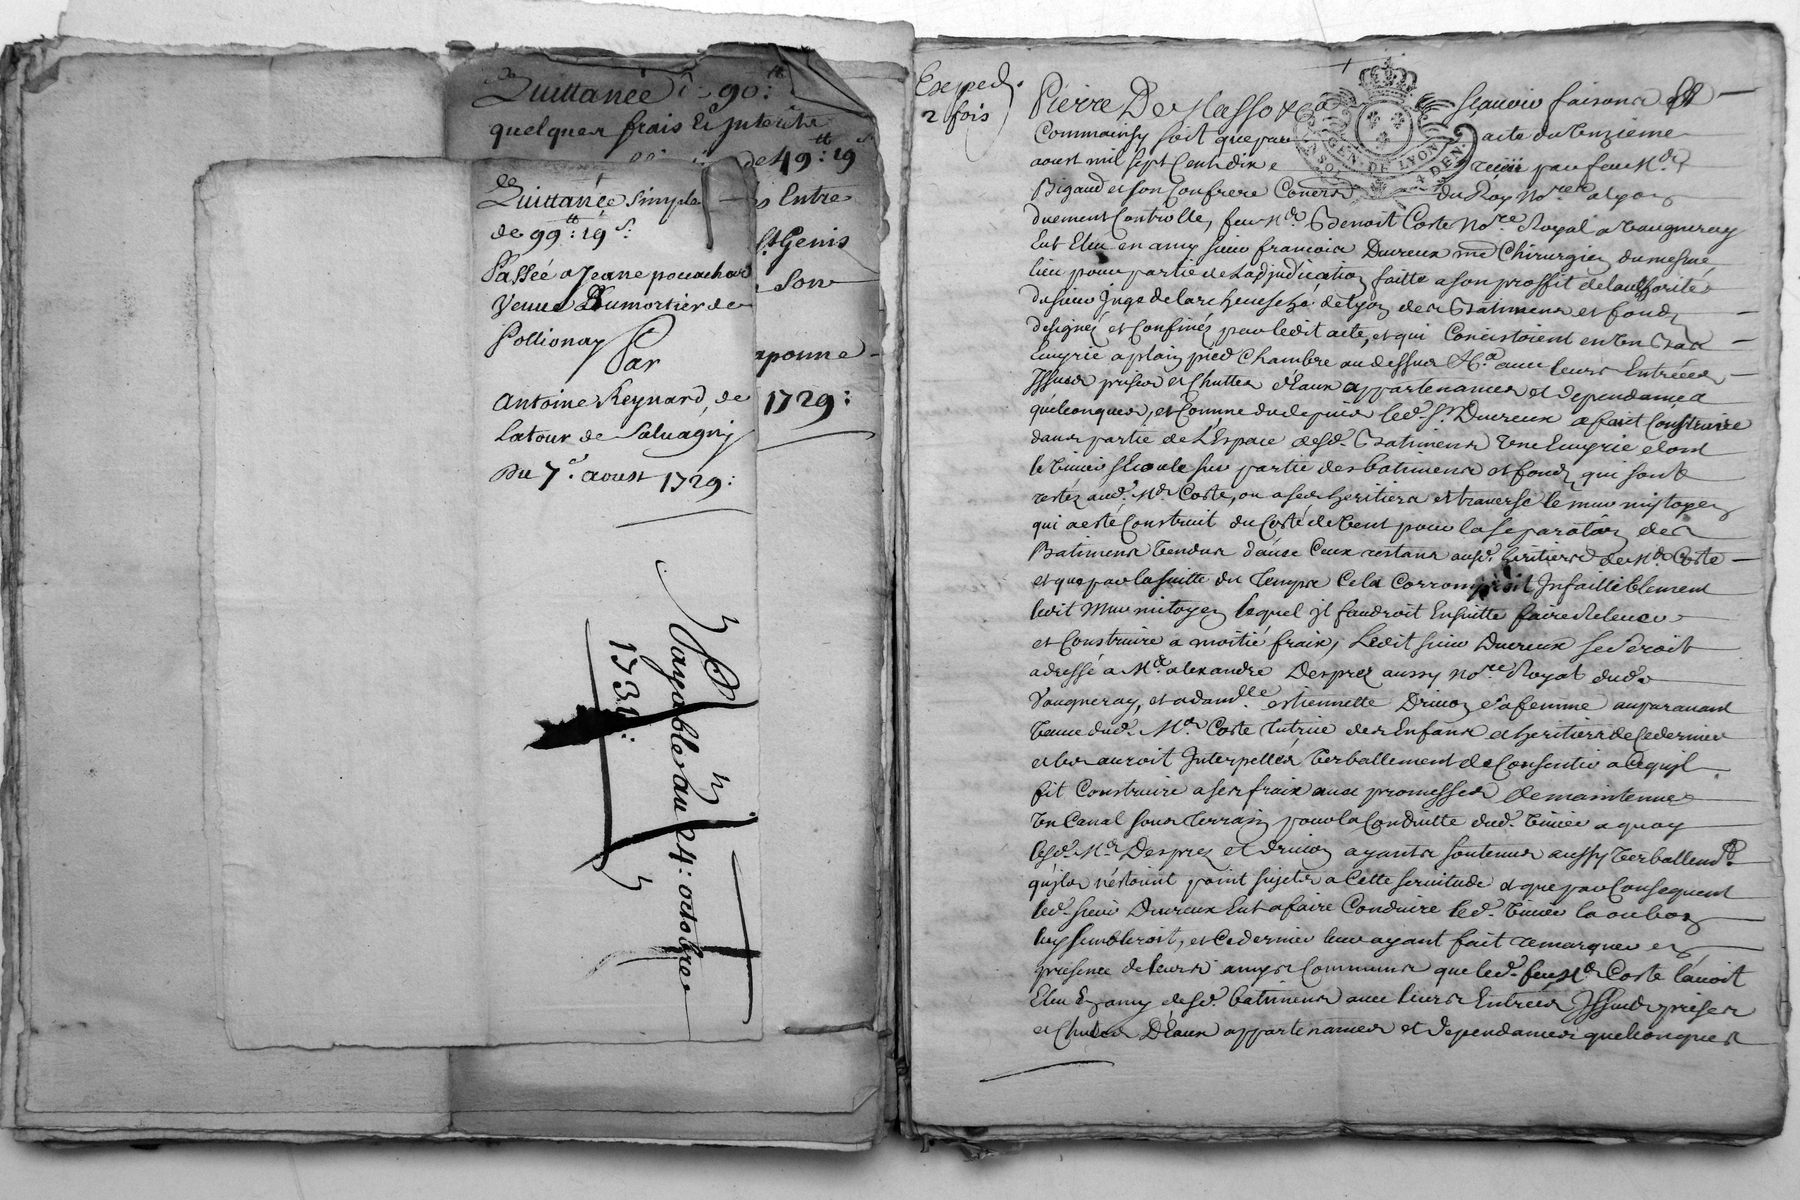 Quittance de 90:tt
quelques frais et Interets
de 49:tt 19s
Entre
St Genis
Son
aponne
1729:
Quittance simple
de 99:tt 19s:
Passée a Jeane pouachon
Veuve Dumortier de
Pollionay
Par
Antoine Reynard, de
Latour de Salvagny
Du 7e. aoust 1729:
Payable au 24: octobre
1731:
Exped.
2 fois
Pierre De Masso &a sçavoir faisons
Comme ainsy soit que par acte du onzieme
aoust mil sept Cent dix receü par feu Me
Bigaud et son Confrere Coners du Roy Nores a Lyon
duement Controllé, feu Me Benoit Coste Nore Royal a Vaugneray
Eut Eleu en amy sieur francois Ducreux me Chirurgien du mesme
lieu pour partie de Ladjudication faitte a son proffit de lauthorité
du sieur Juge de larchevesché de Lyon des Batimens et fonds
designéz et Confinéz par ledit acte, et qui Consistoient en un
Ecuyrie a plain pied Chambre au dessus &a. avec leurs Entrées
Issues prises et Chuttes d'Eaux appartenances et dependances
quelconques, et Comme du depuis led. Sr Ducreux a fait Construire
dans partie de L'Espace desd. Batimens une Ecuyrie dont
le sécoule sur partie des batimens et fonds qui sont
restéz aud. Me Coste, ou a ses heritiers et traverse le mur mitoyen
qui a esté Construit du Costé de Vent pour la separation des
Batimens Vendus davec Ceux restans ausd. heritiers de Me Coste
et que par la suitte du Temps Cela Corromproit Infailliblement
ledit Mur mitoyen lequel il faudroit Ensuitte faire relever
et Construire a moitié fraix, Ledit sieur Ducreux se seroit
adressé a Me alexandre Desprez aussy Nore Royal dud.
Vaugneray, et a damlle estiennette Drivon sa femme auparavant
Veuve dud. Me Coste tutrice des Enfans et heritiers de Ce dernier
et les auroit Interpellés Verballement de Consentir a Ce quil
fit Construire a ses fraix avec promesses de maintenue
un Canal sous terrain pour la Conduitte dud. a quoy
lesd. Me Desprez et Drivon ayants soutenus aussy Verballemt.
quils n'estoient point sujets a Cette servitude et que par Consequent
led. sieur Ducreux Eut a faire Conduire led. la ou bon
luy sembleroit, et Ce dernier leur ayant fait remarquer en
presence de leurs amys Communs que led. feu Me Coste l'avoit
Eleu En amy desd. batimens avec leurs Entrées Issues prises
et Chutes D'Eaux appartenances et dependances quelconques